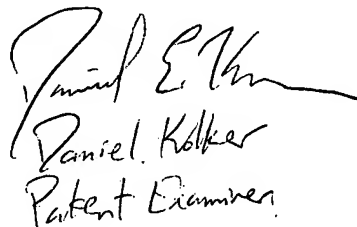 Daniel E. K
Daniel Kolker
Patent Examiner